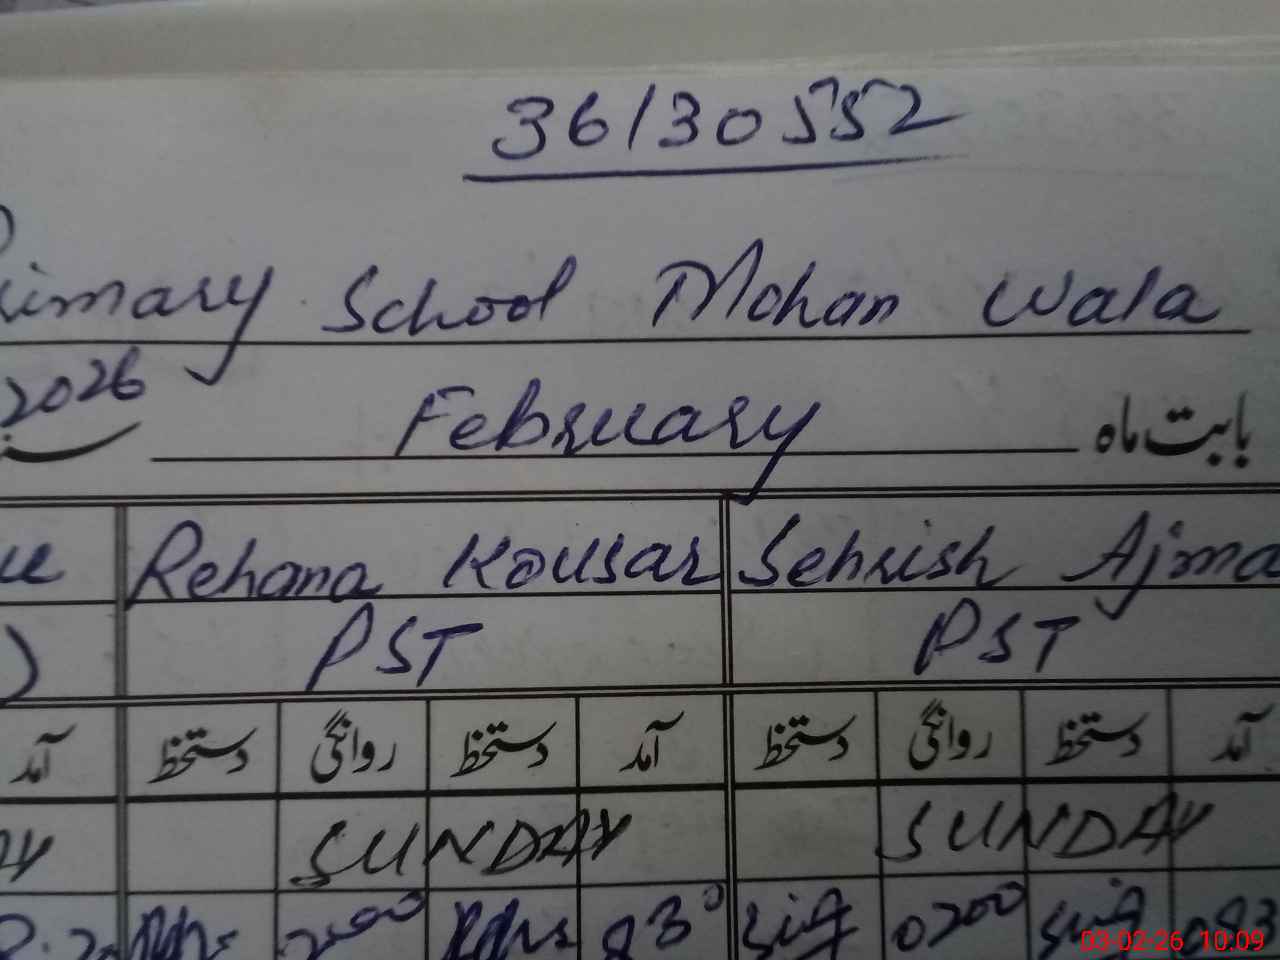 36130552
Primary School Mohan Wala
2026 February بابت ماہ
Rehana Kousar Sehrish Ajma
PST PST
آمد دستخط روانگی دستخط آمد دستخط روانگی دستخط آمد
SUNDAY SUNDAY
200 830 0200 083
03-02-26 10:09